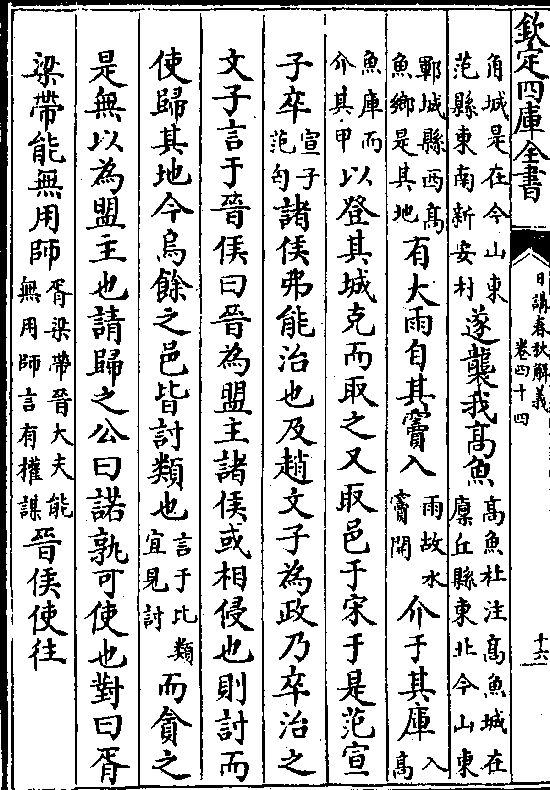 欽定四庫全書
日講春秋解義
卷四十四
十六
角城是在今山東
范縣東南新安村
遂襲我高魚
高魚杜注高魚城在
廪丘縣東北今山東
鄆城縣西高
魚鄉是其地
有大雨自其竇入
雨故水
竇開
介于其庫
入高
魚庫而
介其甲
以登其城克而取之又取邑于宋于是范宣
子卒
宣子
范匄
諸侯弗能治也及趙文子為政乃卒治之
文子言于晉侯曰晉為盟主諸侯或相侵也則討而
使歸其地今烏餘之邑皆討類也
言于比類
宜見討
而貪之
是無以為盟主也請歸之公曰諾孰可使也對曰胥
梁帶能無用師
胥梁帶晉大夫能
無用師言有權謀
晉侯使往